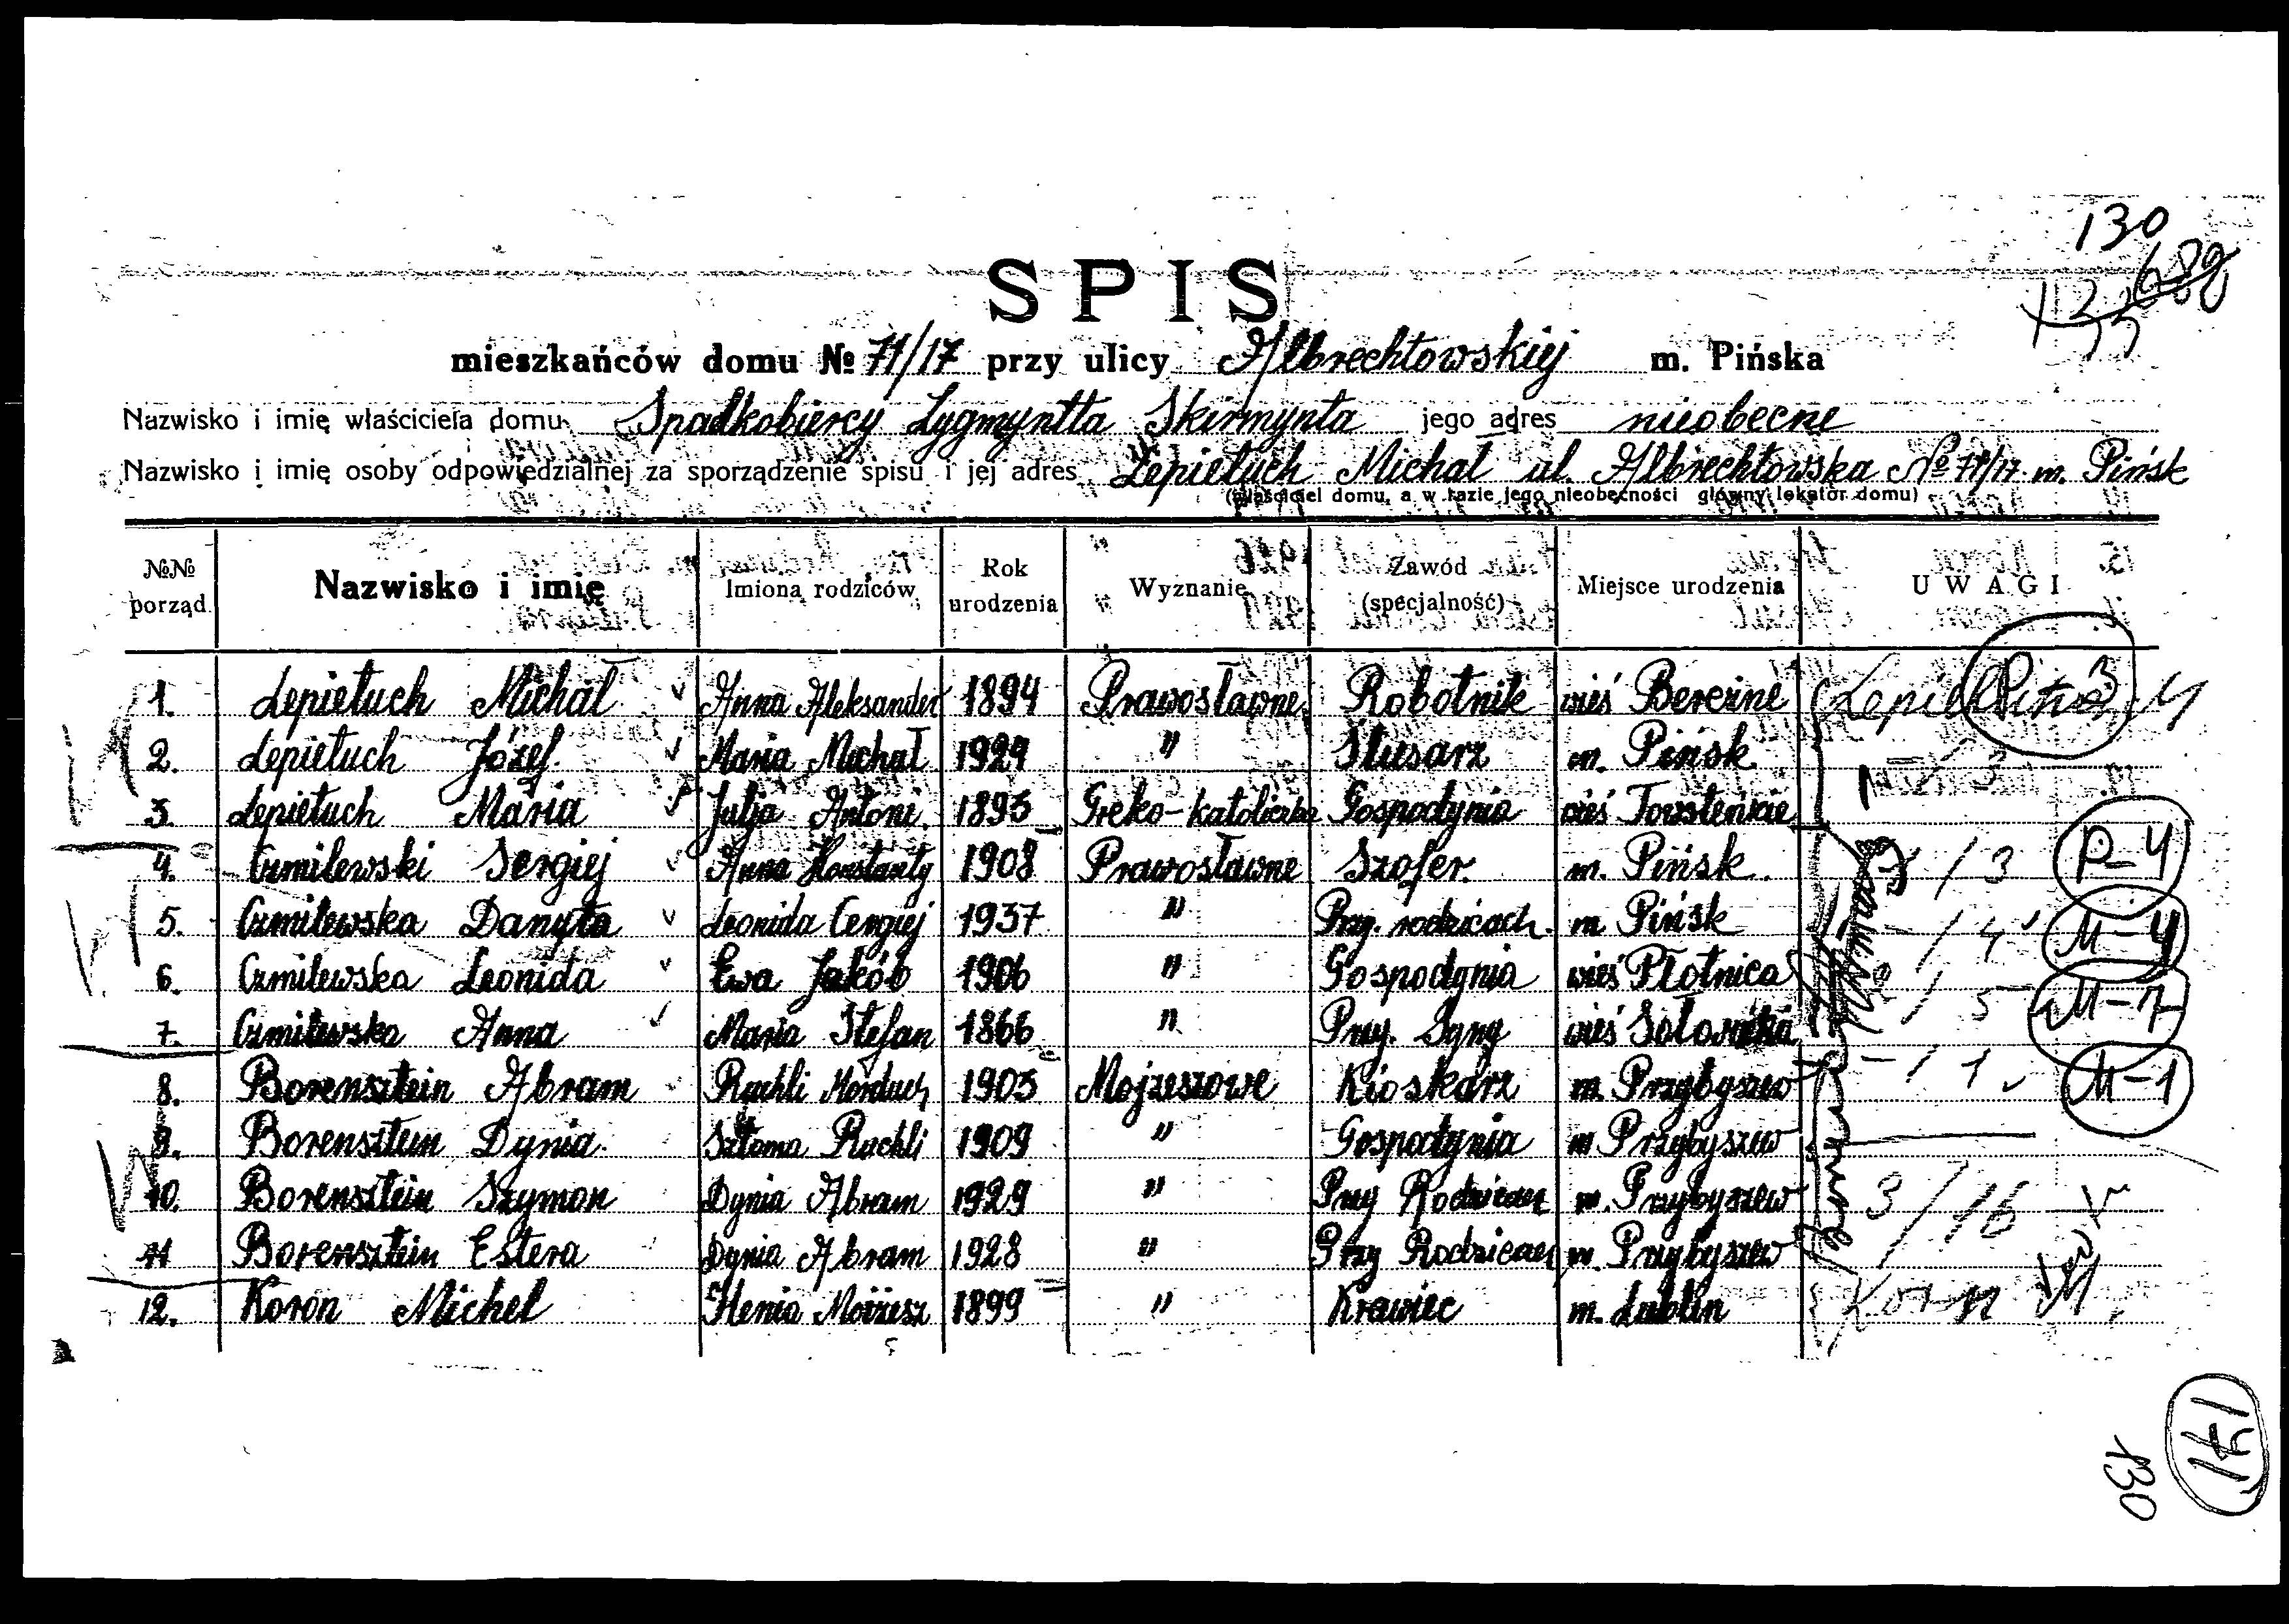 130
689
SPIS
mieszkańców domu № 71/17 przy ulicy Albrechtowskiej m. Pińska
Nazwisko i imię właściciela domu Spadkobiercy Zygmyntta Skirmynta jego adres nieobecne
Nazwisko i imię osoby odpowiedzialnej za sporządzenie spisu i jej adres Lepietuch Michał ul. Albrechtowska № 71/17 m. Pińsk
(właściciel domu, a w razie jego nieobecności główny lokator domu)
№№ porząd. Nazwisko i imię Imiona rodziców Rok urodzenia Wyznanie Zawód (specjalność) Miejsce urodzenia UWAGI
1. Lepietuch Michał Anna Aleksander 1894 Prawosławne Robotnik wieś Berezne
2. Lepietuch Józef Maria Michał 1929 " Ślusarz m. Pińsk
3. Lepietuch Maria Julja Antoni 1893 Greko-katolickie Gospodynia wieś
4. Czmilewski Sergiej Anna Konstanty 1908 Prawosławne Szofer m. Pińsk / 3 P-4
5. Czmilewska Danyta Leonida Cergiej 1937 " Przy. rodzicach m. Pińsk / 4 M-4
6. Czmilewska Leonida Ewa Jakób 1906 " Gospodynia wieś Płotnica / 5 M-7
7. Czmilewska Anna Maria Stefan 1866 " Przy. Syny wieś
8. Borensztein Abram Rachli Morduch 1903 Mojżeszowe Kioskarz m. Przybyszew - / 1 M-1
9. Borensztein Dynia Szloma Rachli 1909 " Gospodynia m Przybyszew
10. Borensztein Szymon Dynia Abram 1929 " Przy Rodzicach m. Przybyszew 3/16
11 Borensztein Estera Dynia Abram 1928 " Przy Rodzicach m. Przybyszew
12. Koron Michel Henia Mojżesz 1899 " Krawiec m. Lublin Korn
141
130